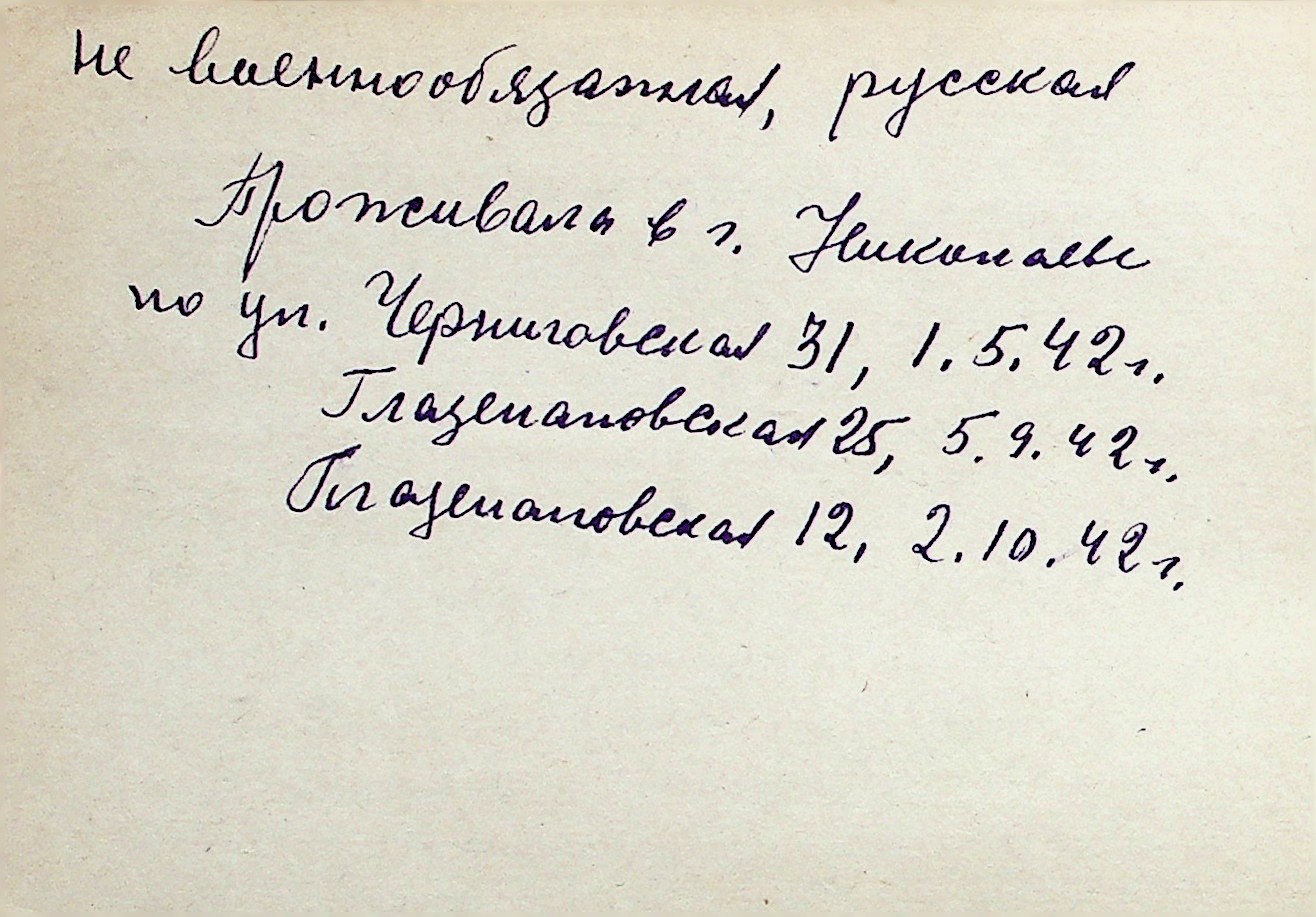 не военнообязанная, русская
Проживала в г. Николаеве
по ул. Черниговская 31, 1.5.42г.
Глазенаповская 25, 5.9.42г.
Глазенаповская 12, 2.10.42г.